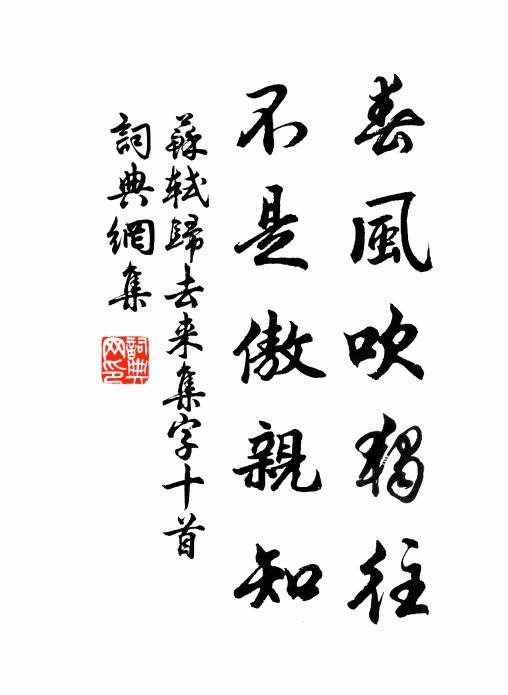 春風吹獨往
不是傲親知
蘇軾歸去来集字十首
詞典網集
詞典网印